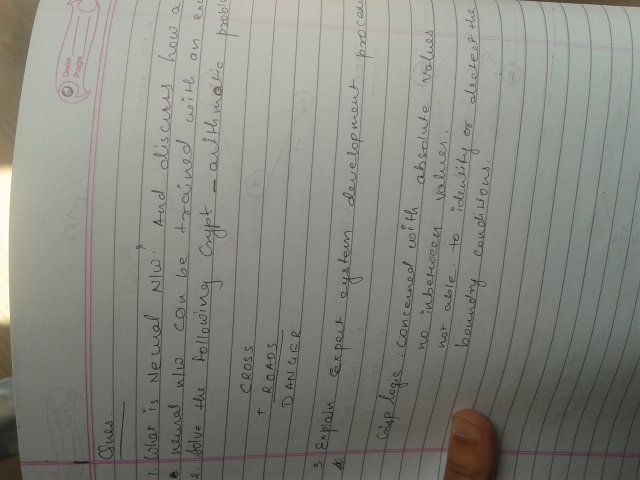 Date
Page
Ques.
1. What is Neural N/W? And discuss how a
neural N/W can be trained with an
2. Solve the following Crypt-arithmatic
CROSS
+ ROADS
DANGER
3. Explain Expert system development
4.
Crisp logic : concerned with absolute values
no inbetween values.
not able to identity or detect the
boundry conditions.